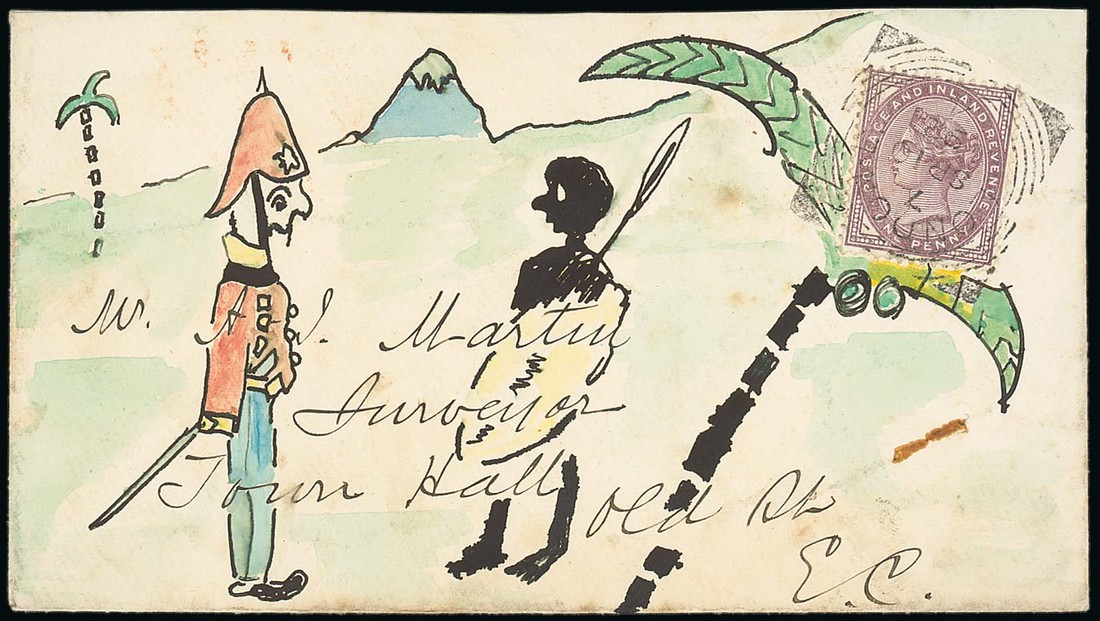 POSTAGE AND INLAND REVENUE
ONE PENNY
Mr. A-J. Martin
Surveyor
Town Hall Old St
E.C.